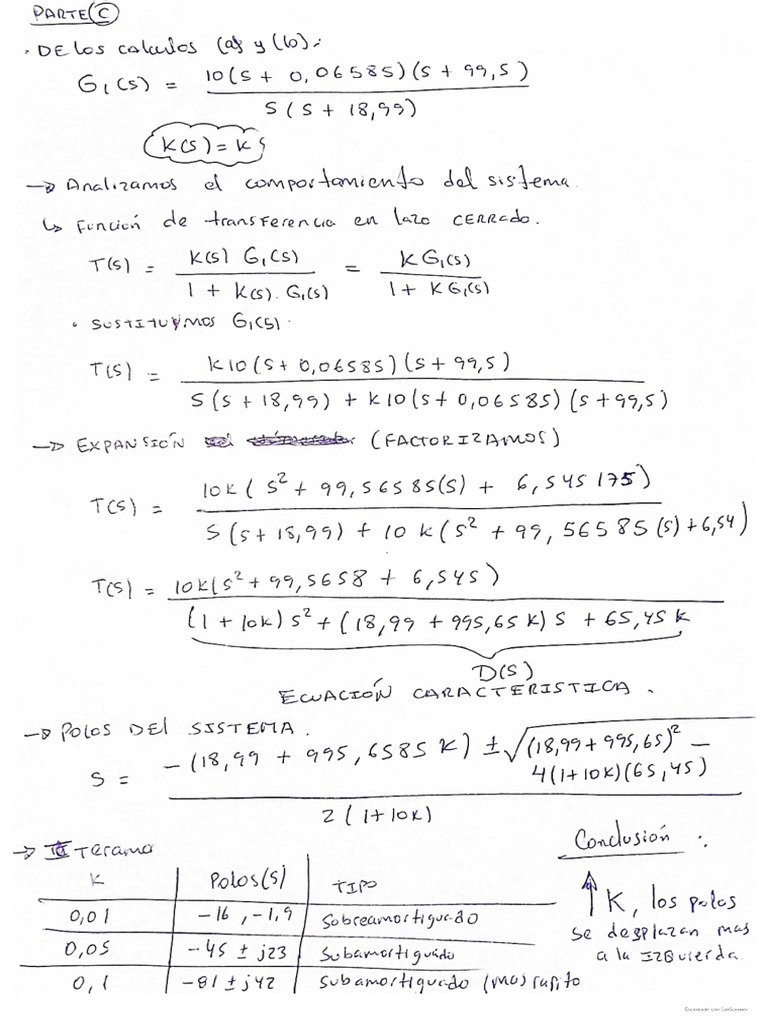 PARTE (C)
· DE los calculos (a) y (b):
G₁(s) = 10(s + 0,06585)(s + 99,5) / s(s + 18,99)
K(s) = K
→ Analizamos el comportamiento del sistema.
↳ Función de transferencia en lazo CERRADO.
T(s) = K(s) G₁(s) / 1 + K(s). G₁(s) = K G₁(s) / 1 + K G₁(s)
· SUSTITUYMOS G₁(s).
T(s) = K10(s + 0,06585)(s + 99,5) / s(s + 18,99) + K10(s + 0,06585)(s + 99,5)
→ EXPANSIÓN (FACTORIZAMOS)
T(s) = 10K(s² + 99,56585(s) + 6,545175) / s(s + 18,99) + 10K(s² + 99,56585(s) + 6,54)
T(s) = 10K(s² + 99,5658 + 6,545) / (1 + 10K)s² + (18,99 + 995,65K)s + 65,45K
D(s)
ECUACIÓN CARACTERISTICA.
→ POLOS DEL SISTEMA.
s = -(18,99 + 995,6585K) ± √(18,99 + 995,65)² - 4(1+10K)(65,45) / 2(1+10K)
→ Iteramo
K Polos(s) TIPO
0,01 -16, -1,9 Sobreamortiguado
0,05 -45 ± j23 Subamortiguado
0,1 -81 ± j42 Subamortiguado (mas rapito
Conclusión:
↑K, los polos
se desplazan mas
a la IZQuierda.
Escaneado con CamScanner